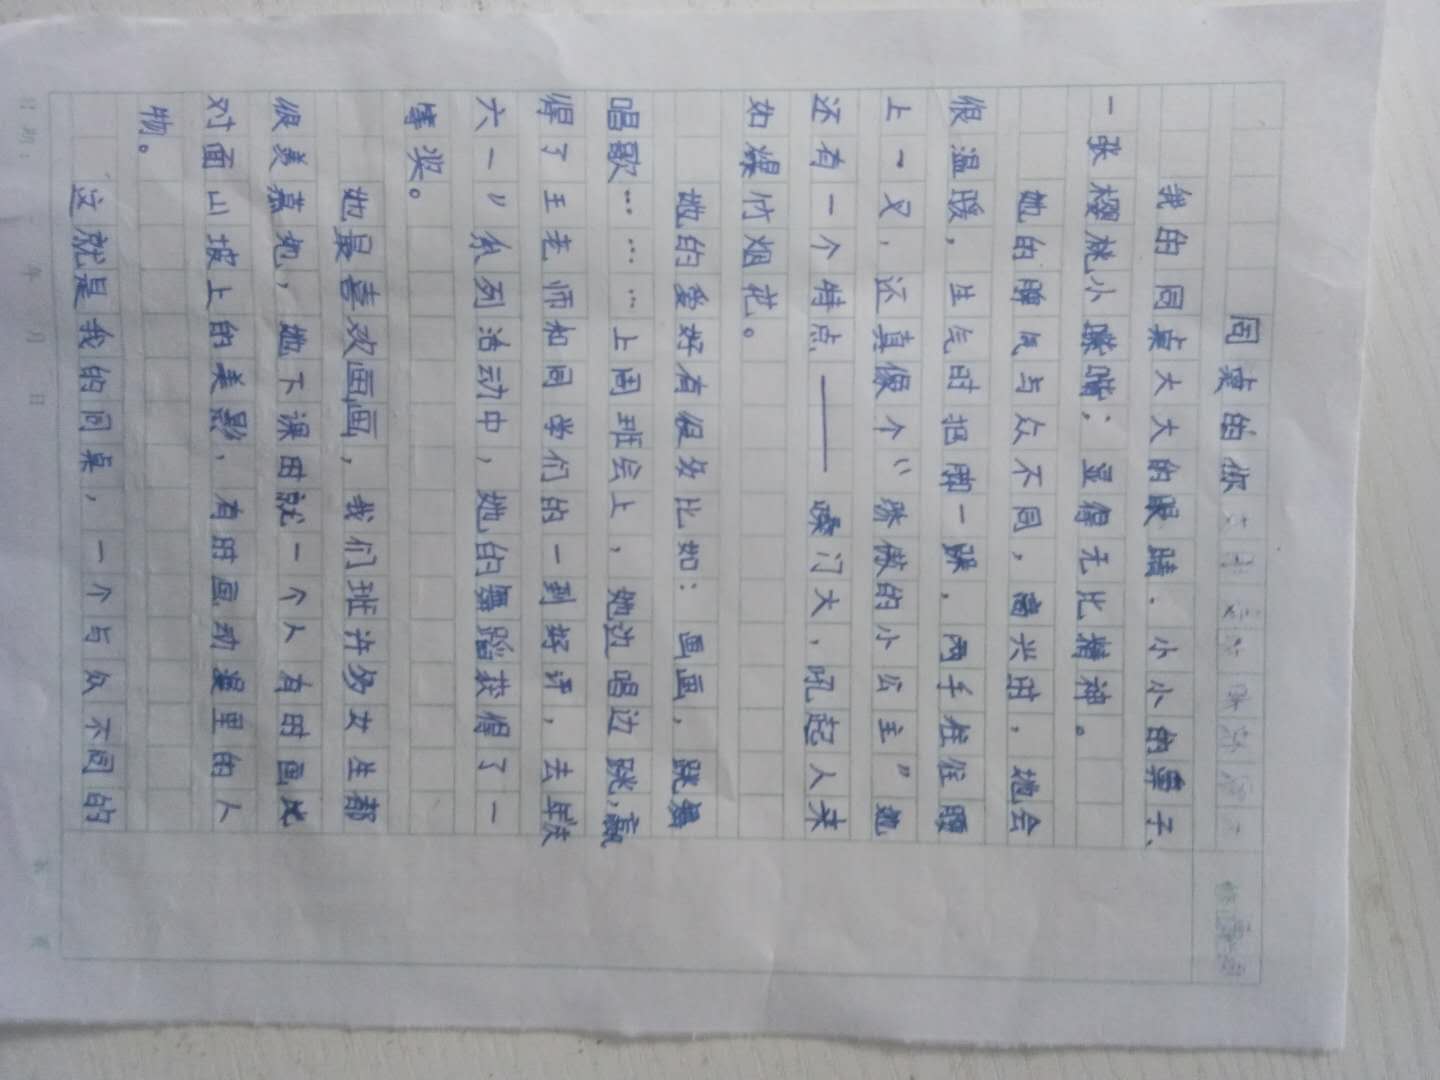 同桌的你
我的同桌大大的眼睛.小小的鼻子、
一张樱桃小嘴嘴；显得无比精神。
她的脾气与众不同，高兴时，她会
很温暖，生气时把脚一跺，两手往住腰
上一叉，还真像个“骄傲的小公主”她
还有一个特点——嗓门大，吼起人来
如爆竹烟花。
她的爱好有很多比如：画画，跳舞
唱歌………上周班会上，她边唱边跳，赢
得了王老师和同学们的一到好评，去年庆
六一”系列活动中，她的舞蹈获得了一
等奖。
她最喜欢画画，我们班许多女生都
很羡慕她，她下课时就一个人有时画
对面山坡上的美影，有时画动漫里的人
物。
这就是我的同桌，一个与众不同的
日期： 年 月 日